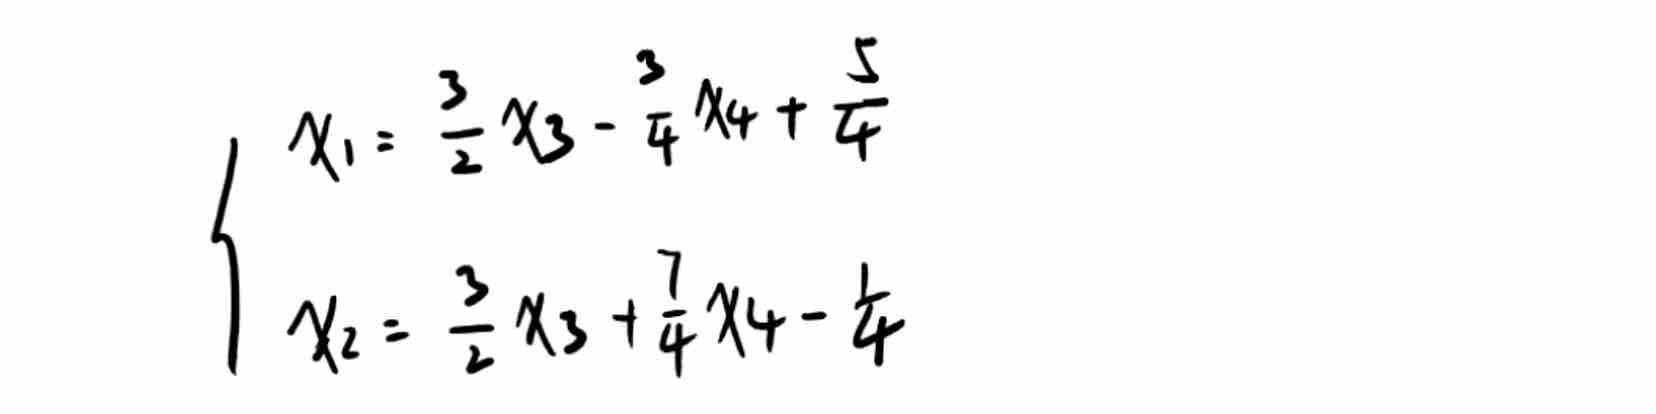 x₁ = 3/2 x₃ - 3/4 x₄ + 5/4
x₂ = 3/2 x₃ + 7/4 x₄ - 1/4